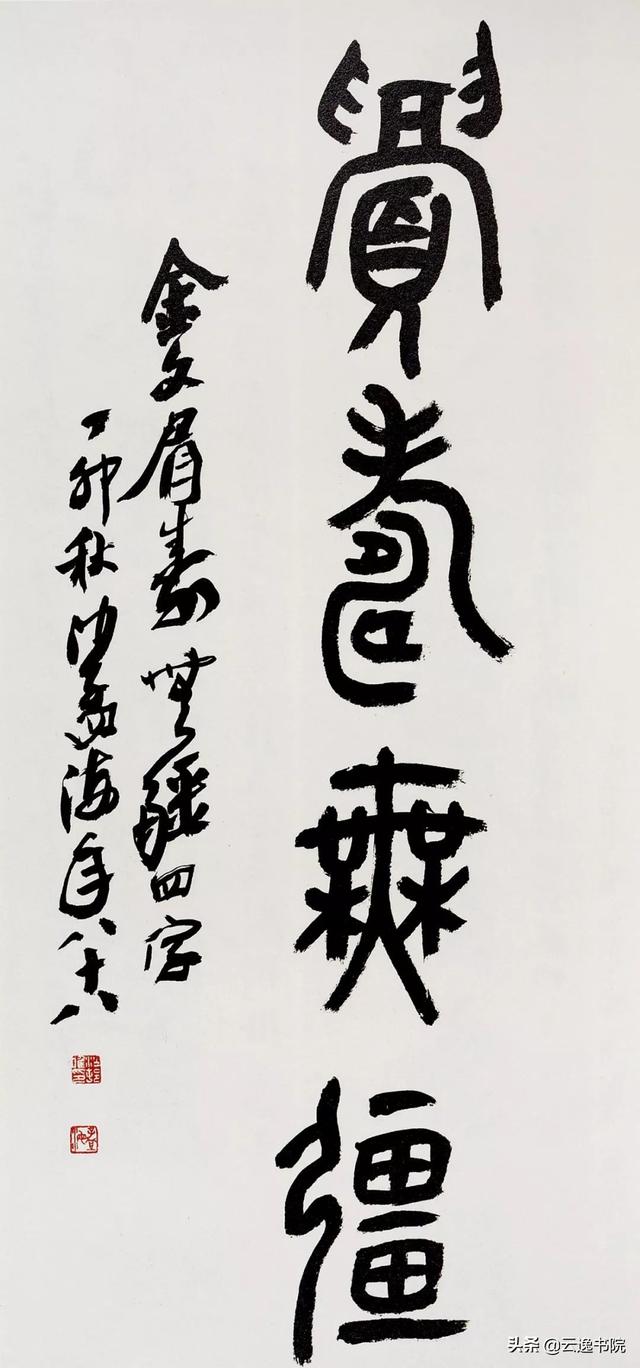 眉壽無疆
金文眉壽無疆四字
丁卯秋沙孟海年八十八
头条 @云逸书院